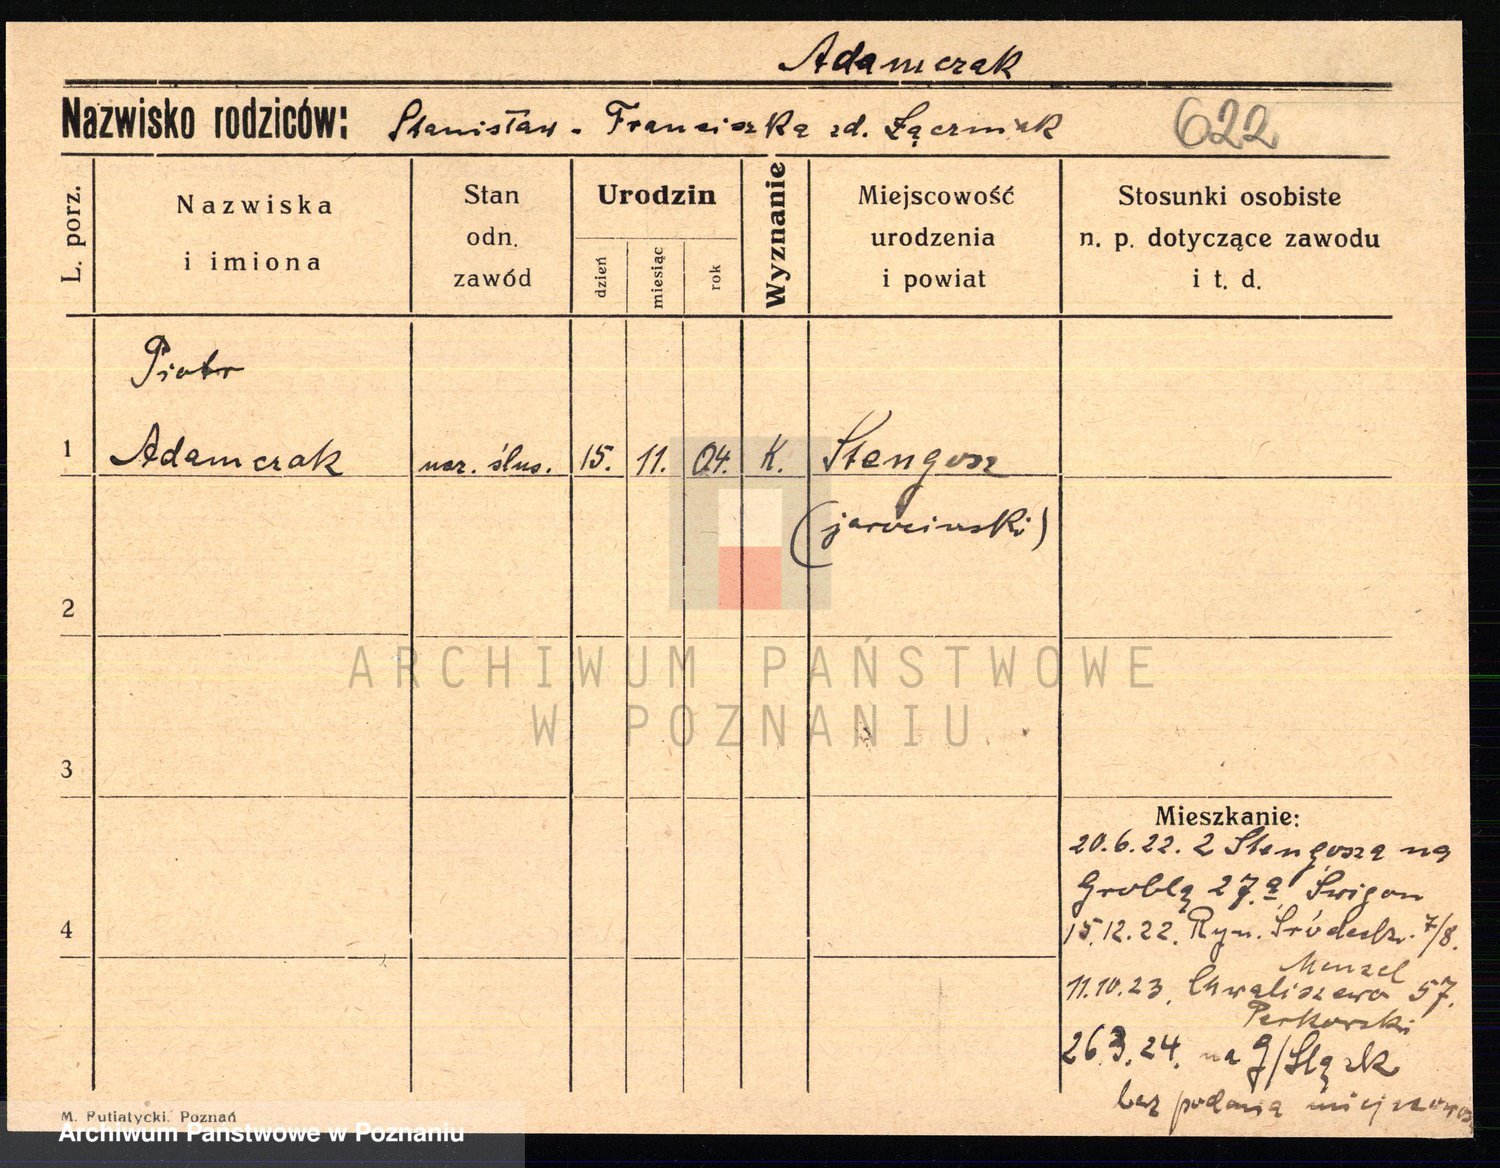 Adamczak
Nazwisko rodziców: Stanisław - Franciszka zd. Łączniak 622
L. porz.
Nazwiska
i imiona
Stan
odn.
zawód
Urodzin
dzień
miesiąc
rok
Wyznanie
Miejscowość
urodzenia
i powiat
Stosunki osobiste
n. p. dotyczące zawodu
i t. d.
Piotr
1 Adamczak ucz. ślus. 15. 11. 04. K. Stengosz
(jarociński)
2
ARCHIWUM PAŃSTWOWE
W POZNANIU
3
Mieszkanie:
20.6.22. z Stengosza na
Groblą 27a Świgon
4
15.12.22. Ryn. Śródecki. 7/8.
Menzel
11.10.23. Chwaliszewo 57.
Perkowski
26.3.24. na G/Śląsk
bez podania miejscowoś
M. Putiatycki. Poznań
Archiwum Państwowe w Poznaniu